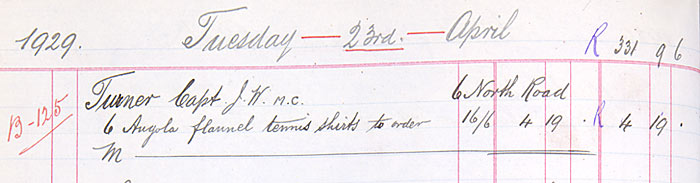 1929. Tuesday — 23rd. — April R 331 9 6
B-125 Turner Capt J. W. M.C. 6 North Road
6 Angola flannel tennis shirts to order 16/6 4 19 . R 4 19 .
M